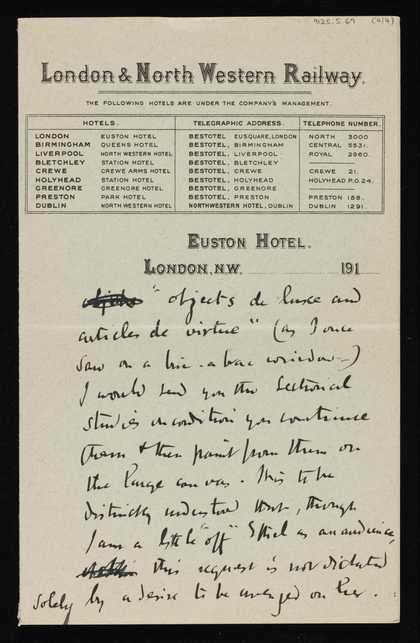 9125.5.67 (4/4)
London & North Western Railway.
THE FOLLOWING HOTELS ARE UNDER THE COMPANY'S MANAGEMENT.
HOTELS. TELEGRAPHIC ADDRESS. TELEPHONE NUMBER.
LONDON EUSTON HOTEL BESTOTEL, EUSQUARE, LONDON NORTH 3000
BIRMINGHAM QUEENS HOTEL BESTOTEL, BIRMINGHAM CENTRAL 5531.
LIVERPOOL NORTH WESTERN HOTEL BESTOTEL, LIVERPOOL ROYAL 2960.
BLETCHLEY STATION HOTEL BESTOTEL, BLETCHLEY
CREWE CREWE ARMS HOTEL BESTOTEL, CREWE CREWE 21.
HOLYHEAD STATION HOTEL BESTOTEL, HOLYHEAD HOLYHEAD P.O.24.
GREENORE GREENORE HOTEL BESTOTEL, GREENORE
PRESTON PARK HOTEL BESTOTEL, PRESTON PRESTON 158.
DUBLIN NORTH WESTERN HOTEL NORTHWESTERN HOTEL, DUBLIN DUBLIN 1291.
EUSTON HOTEL.
LONDON, N.W. 191
"objects de luxe and
articles de virtue" (as I once
saw on a bric-a-brac window-)
I would send you the Sectional
studies on condition you continue
them & then paint from them on
the large canvas. It is to be
distinctly understood that, though
I am a little "off" Ethel as an audience,
this request is not dictated
solely by a desire to be avenged on her.